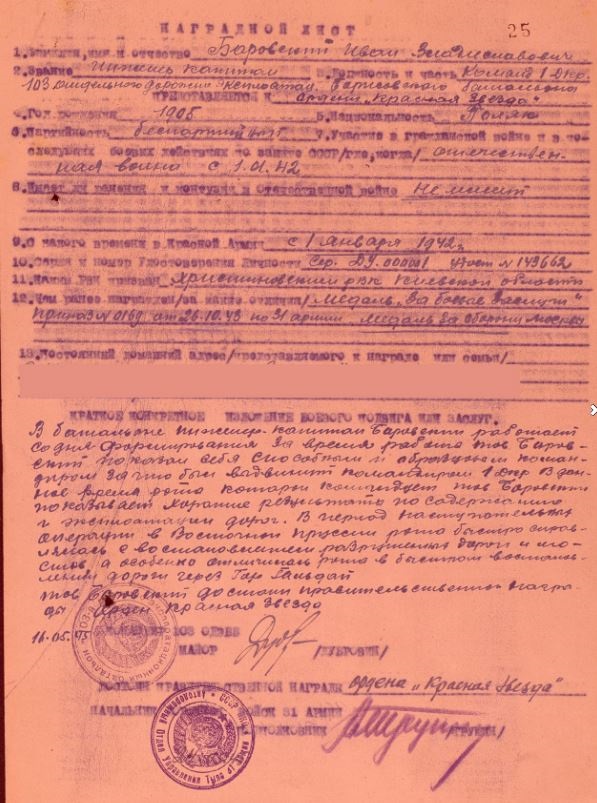 25
НАГРАДНОЙ ЛИСТ
1. Фамилия, имя и отчество Баровский Иван Владиславович
2. Звание инженер капитан 3. Должность и часть Команд. 1 ДКР.
103 отдельного дорожно Эксплоатац. батальона
ПРЕДСТАВЛЯЕТСЯ К ордену „Красная Звезда"
4. Год рождения 1905 5. Национальность Поляк
6. Партийность беспартийный 7. Участие в гражданской войне и в по-
следующих боевых действиях по защите СССР /где, когда/ отечествен-
ная война с 1.01.42
8. Имеет ли ранения и контузии в Отечественной войне Не имеет
9. С какого времени в Красной Армии с 1 января 1942 г
10. Серия и номер Удостоверения Личности Сер. ДУ. 000001 удост № 143662
11. Каким РВК призван Христиновским рвк Киевской области
12. Чем ранее награжден /за какие отличия/ Медаль „За боевые Заслуги"
приказ № 0169 от 26.10.43 по 31 армии. Медаль За оборону Москвы
13. Постоянный домашний адрес /представляемого к награде или семьи/
КРАТКОЕ КОНКРЕТНОЕ ИЗЛОЖЕНИЕ БОЕВОГО ПОДВИГА ИЛИ ЗАСЛУГ.
В батальоне инженер-капитан Баровский работает
со дня формирования За время работы тов Баров-
ский показал себя способным и образцовым коман-
диром за что был выдвинут командиром 1 ДКР В дан-
ное время рота которой командует тов Баровский
показывает хорошие результаты по содержанию
и эксплоатации дорог. В период наступательных
операции в Восточной Пруссии рота быстро справ-
лялась с востановлением разрушенных дорог и мо-
стов, а особенно отличилась рота в быстром востанов-
лении дороги через Гор
тов Баровский достоин правительственной награ-
ды Орден Красная Звезда
16.05.45 КОМАНДИР 103 ОДЭБ
МАЙОР /ДУБРОВИН/
ДОСТОИН ПРАВИТЕЛЬСТВЕННОЙ НАГРАДЫ ордена „Красная Звезда"
НАЧАЛЬНИК ВОЙСК 31 АРМИИ
ПОЛКОВНИК